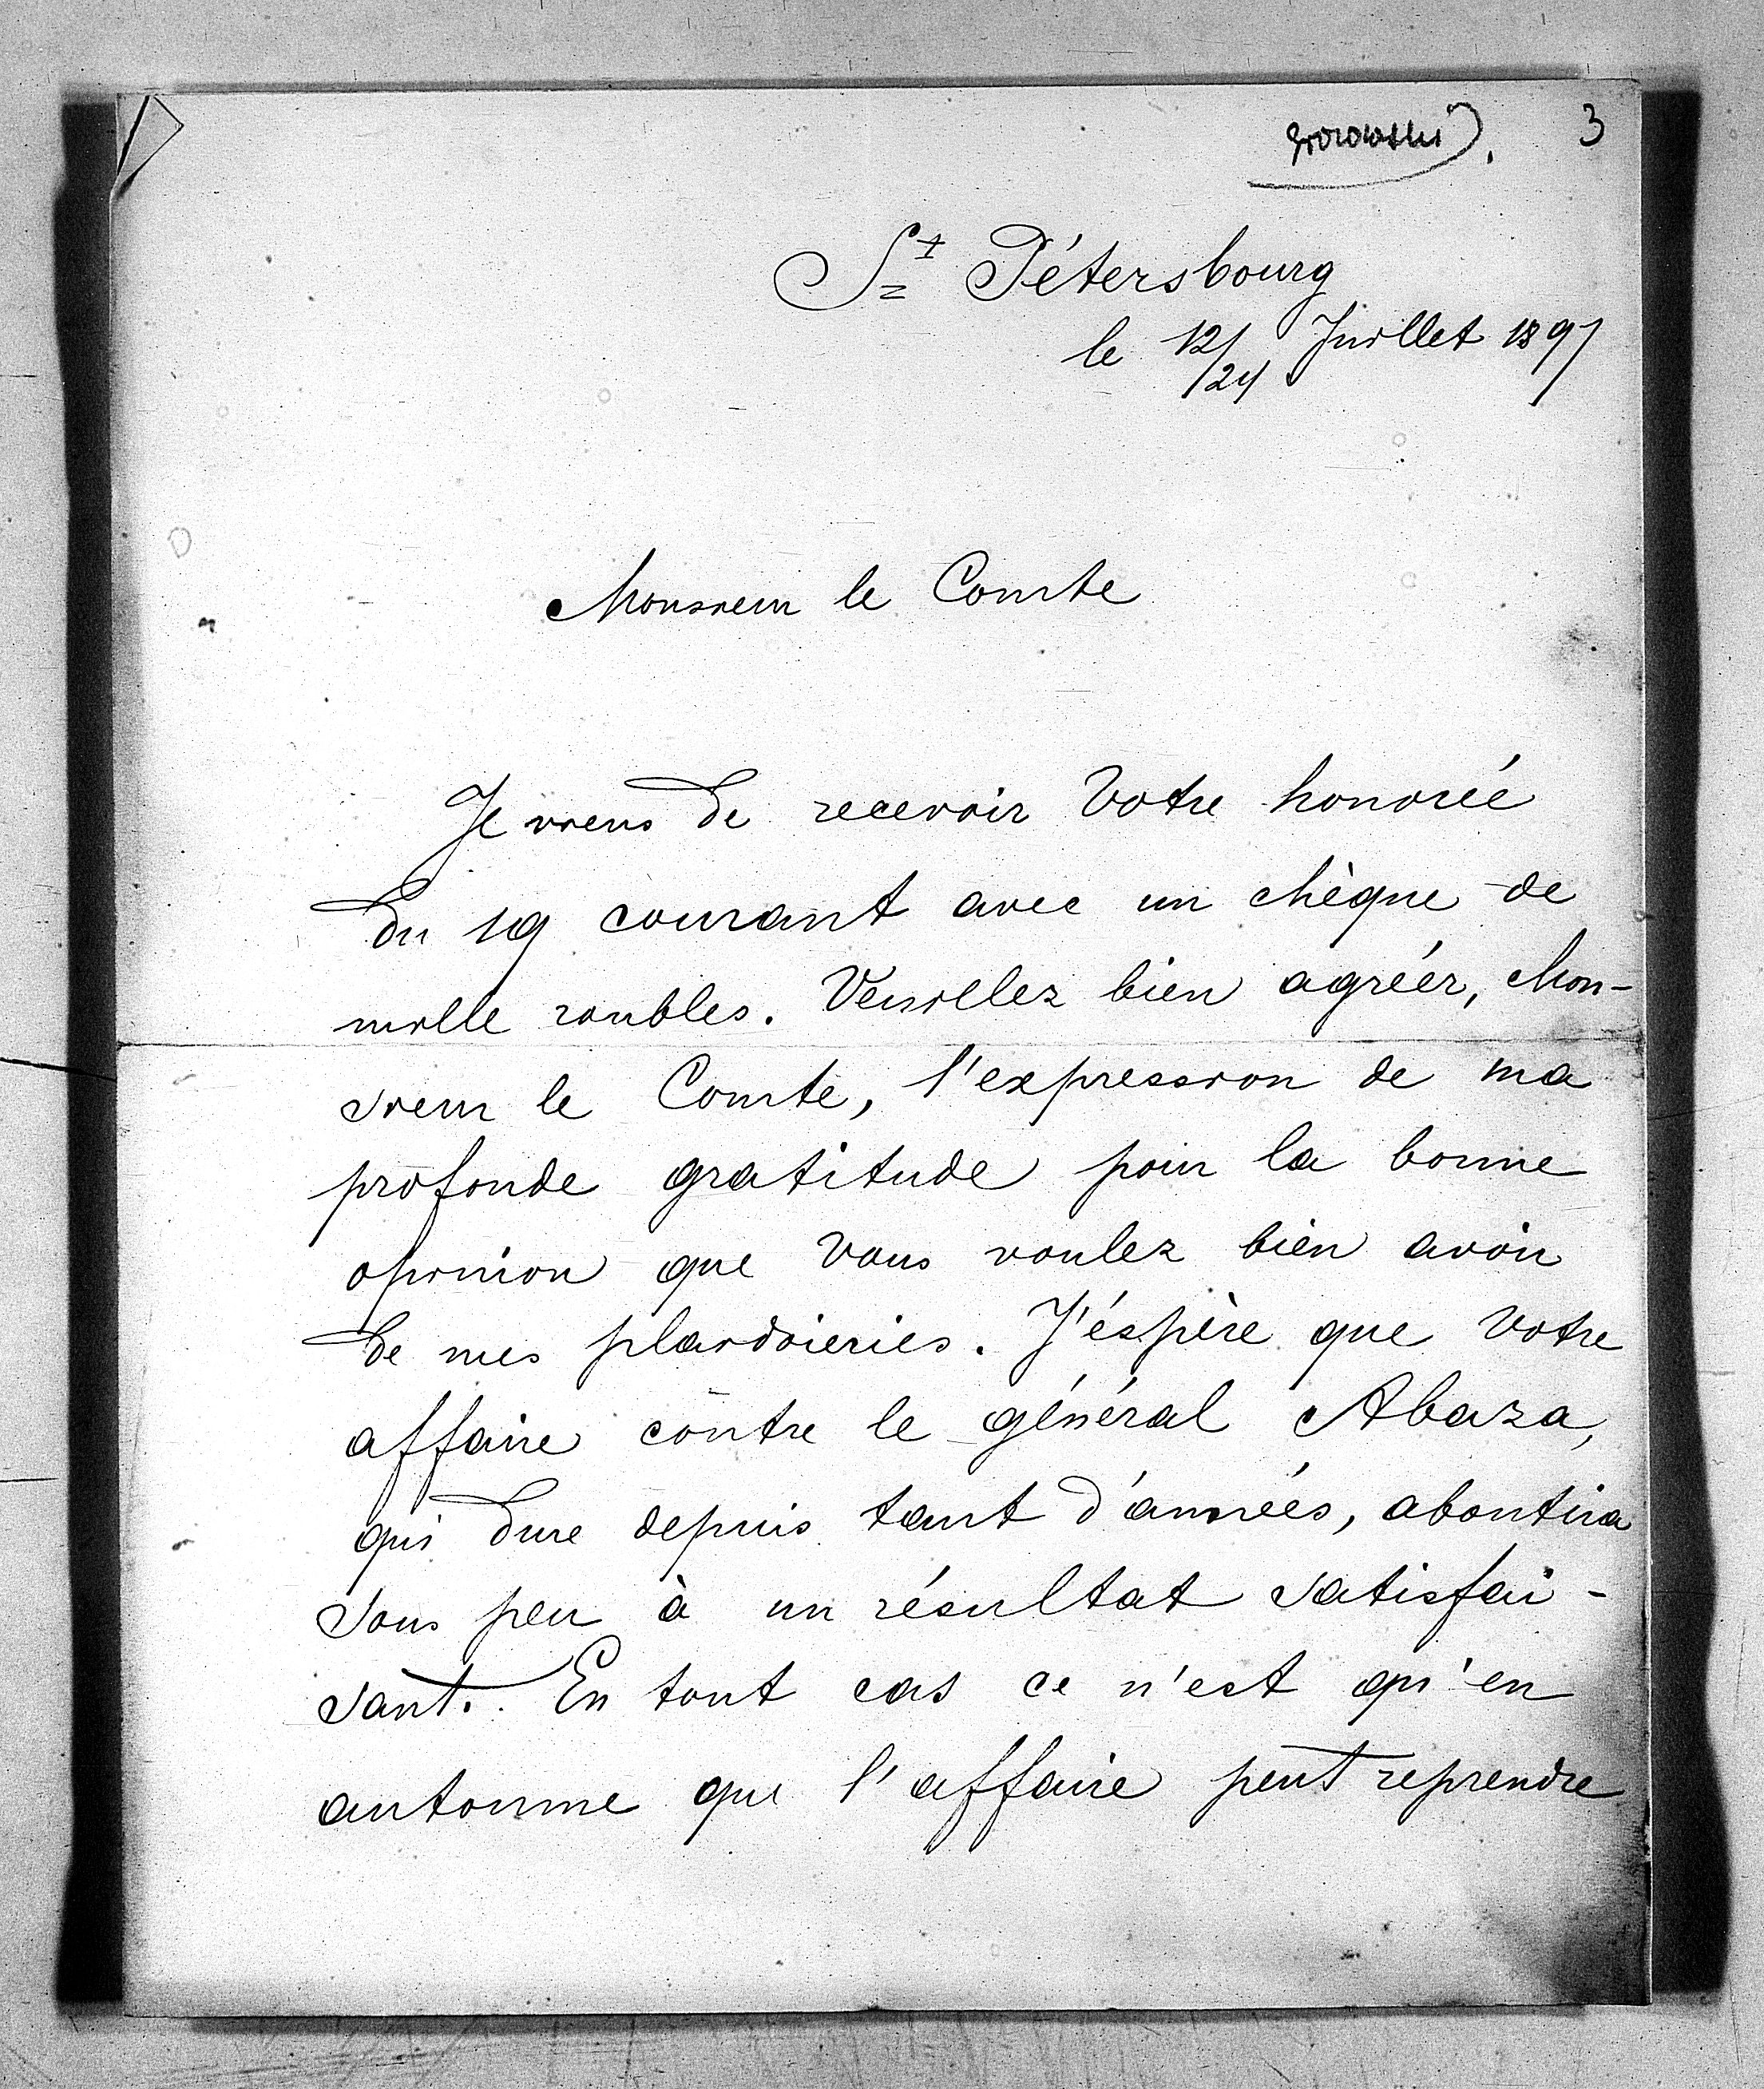 3
St Pétersbourg
le 12/24 Juillet 1897
Monsieur le Comte
Je viens de recevoir Votre honorée
du 19 courant avec un chèque de
mille roubles. Veuillez bien agréér, Mon-
sieur le Comte, l'expression de ma
profonde gratitude pour la bonne
opinion que Vous voulez bien avoir
de mes plaidoieries. J'éspère que Votre
affaire contre le général Abaza,
qui dure depuis tant d'années, aboutira
sous peu à un résultat satisfai-
sant. En tout cas ce n'est qu'en
automne que l'affaire peut reprendre